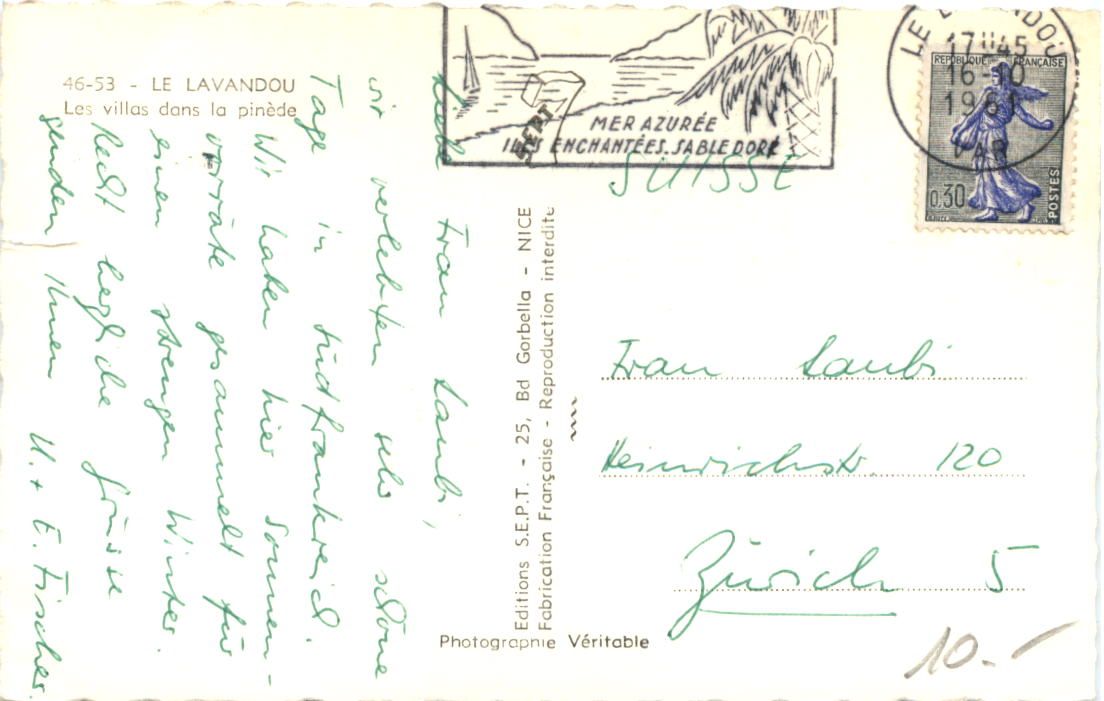 46-53 - LE LAVANDOU
Les villas dans la pinède
Liebe Frau Laubi,
wir verlebten sehr schöne
Tage in Südfrankreich.
Wir haben hier Sonnen-
vorräte gesammelt für
einen strengen Winter.
Recht herzliche Grüsse
senden Ihnen
U. + E. Fischer
SEPT
MER AZURÉE
ILES ENCHANTÉES. SABLE DORÉ
LE LAVANDOU
17H45
16-10
1961
VAR
REPUBLIQUE FRANÇAISE
0,30
POSTES
SUISSE
Editions S.E.P.T. - 25, Bd Gorbella - NICE
Fabrication Française - Reproduction interdite
Frau Laubi
Heinrichstr. 120
Zürich 5
Photographie Véritable
10.-